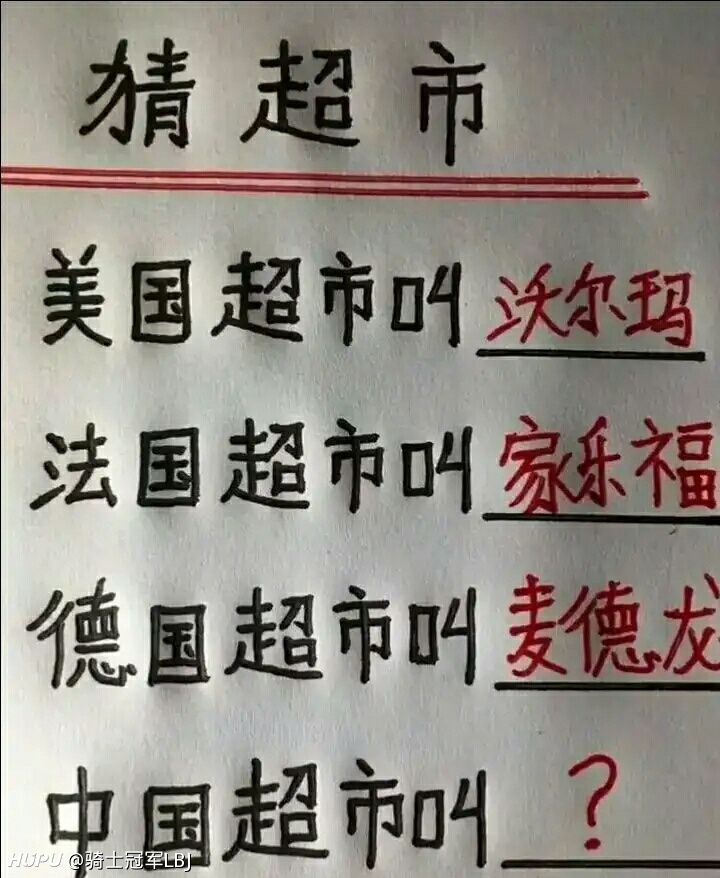 猜超市
美国超市叫沃尔玛
法国超市叫家乐福
德国超市叫麦德龙
中国超市叫?
HUPU @骑士冠军LBJ